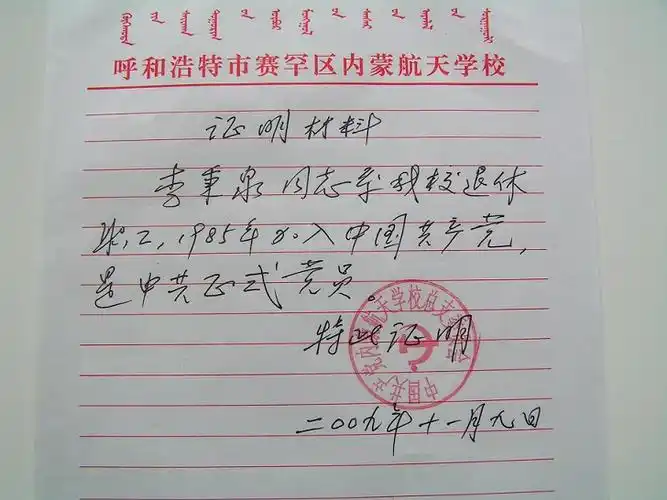 呼和浩特市赛罕区内蒙航天学校
证明材料
李秉泉同志系我校退休
职工,1985年加入中国共产党,
是中共正式党员。
特此证明
中国共产党内蒙航天学校总支
二00九年十一月九日